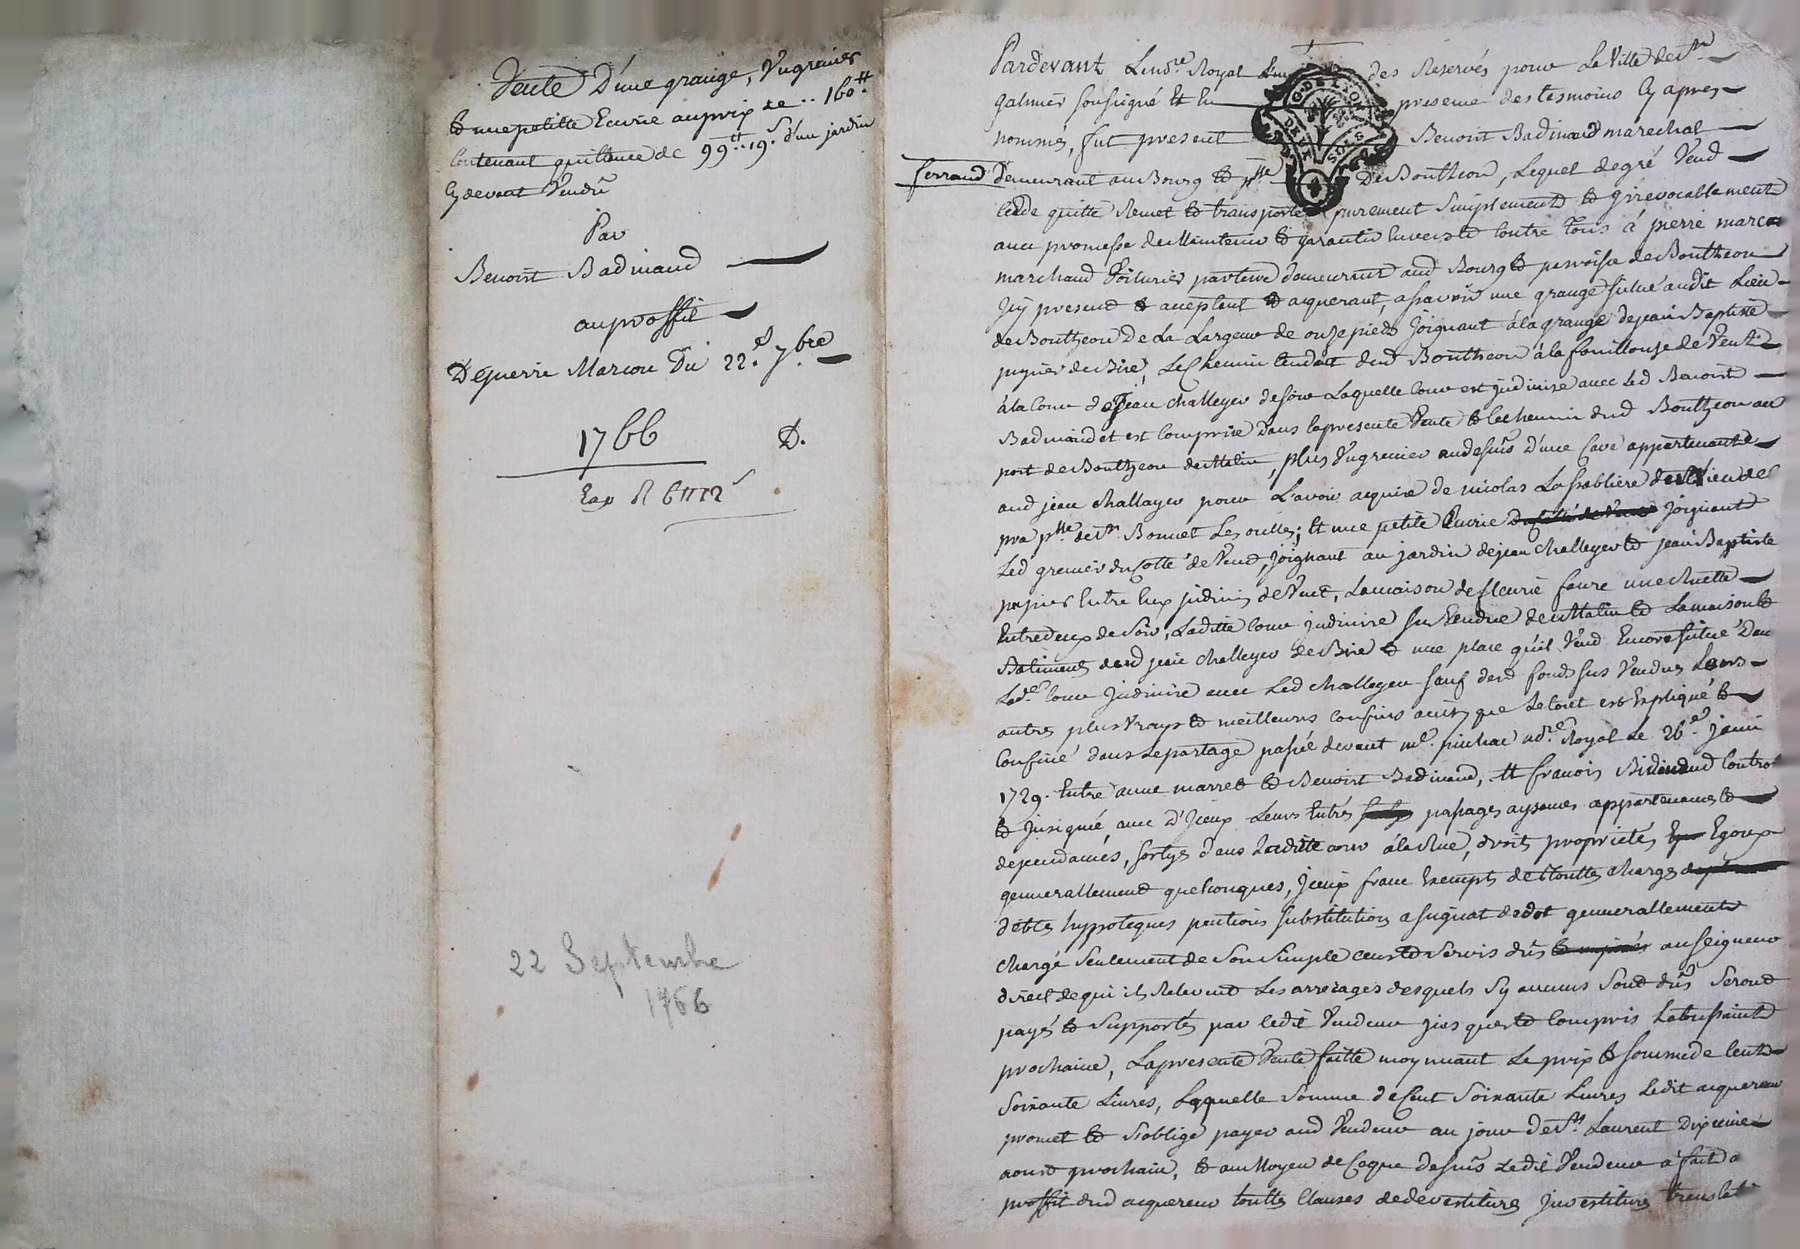 Vente D'une grange, Un grenier
et une petitte Ecurie au prix de .. 160.tt
Contenant quittence de 99.tt 19.s d'un jardin
Cy devant Vendu
Par
Benoist Badinaud
au proffit
De pierre Marcou Du 22.e 7.bre
1766
D.
22 Septembre
1766
Pardevant Le no.re Royal des Reservés pour La Ville de S.t
galmier soussigné Et En presence des tesmoins Cy apres
nommés, fut present Benoist Badinaud marechal
ferraud Demeurant au Bourg et p.sse De Boutheon, Lequel de gré Vend
Cede quitte Remet et transporte purement Simplement et Irrevocablement
avec promesse de Maintenir et garantir Envers et Contre Tous à pierre marcou
marchand Voiturier par terre demeurant aud Bourg et parroisse de Bouthéon
Icy present et acceptant et aquerant, assavoir une grange située audit Lieu
de Bouthéon De La Largeur de onze pieds Joignant à la grange de jean Baptiste
papier de Bize, Le Chemin tendant dud Bouthéon à la fouillouze de Vent
à la Cour de Jean challeyer de soir Laquelle Cour est judivise avec Led Benoist
Badinaud et est Comprise Dans la presente Vente et le chemin dud Bouthéon au
port de Bouthéon de Matin, plus Un grenier au dessus D'une Cave appartenante
aud jean challayer pour L'avoir acquire de nicolas La sabliere du Lieu de
pra p.sse de S.t Bonnet Les oulles; Et une petite Ecurie joignant
Led grenier du Cotté de Vent, Joignant au jardin de jean challeyer et jean Baptiste
papier Entre Eux judivis de Vent, La maison de fleurie faure une Ruette
Entredeux de Soir, Laditte Cour judivise de Matin et La maison et
Batiments dud jean challeyer de Bize et une place qu'il Vend Encore située Dans
Lad.e Cour judivise avec Led challeyer sauf desd fonds sus Vendus Leurs
autres plus Vrays et meilleurs Confins ainsy que Le tout est Expliqué et
Confiné dans Le partage passé devant m.e no.re Royal Le 26.e
1729. Entre anne marret et Benoist Badinaud, Et francois Badinaud Controllé
et Insignué, avec D'Iceux Leurs Entrés passages aysances appartenances et
dependances, sortyes dans Laditte cour à la Rue, droits proprietés Egoux
generallement quelconques, Iceux franc Exempts de Touttes charges
debtes hypoteques pentions substitution assignat de dot generallement
chargé Seulement de Son Simple cens et Servis dus au seigneur
direct de qui ils Relevent Les arrerages desquels Sy aucuns Sont dus Seront
payés et Supportés par ledit Vendeur jusques et Compris La toussaint
prochaine, La presente Vente faitte moynnant Le prix et somme de Cent
Soixante Livres, Laquelle Somme de Cent Soixante Livres Ledit aquereur
promet et s'oblige payer aud Vendeur au jour de S.t Laurent Dixieme
aoust prochain, et au Moyen de Ce que dessus Ledit Vendeur a fait a
proffit dud aquereur touttes Clauses de devestiture Investiture